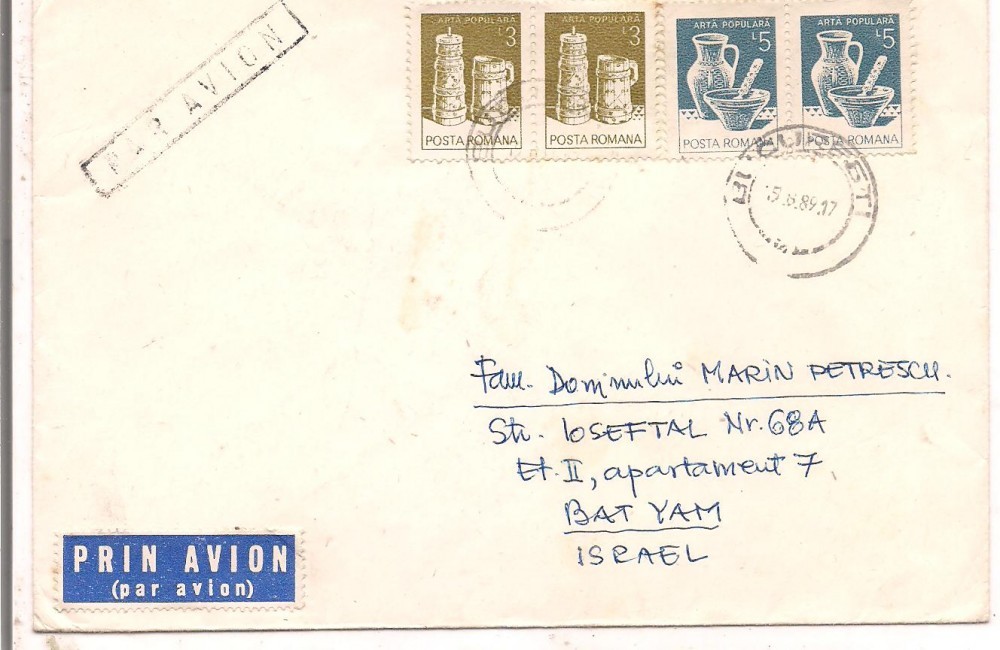 PAR AVION
ARTĂ POPULARĂ
L3
POSTA ROMANA
ARTĂ POPULARĂ
L3
POSTA ROMANA
ARTĂ POPULARĂ
L5
POSTA ROMANA
ARTĂ POPULARĂ
L5
POSTA ROMANA
BUCUREȘTI
89.17
Fam. Domnului MARIN PETRESCU.
Str. IOSEFTAL Nr. 68A
Et. II, apartament 7
BAT YAM
ISRAEL
PRIN AVION
(par avion)